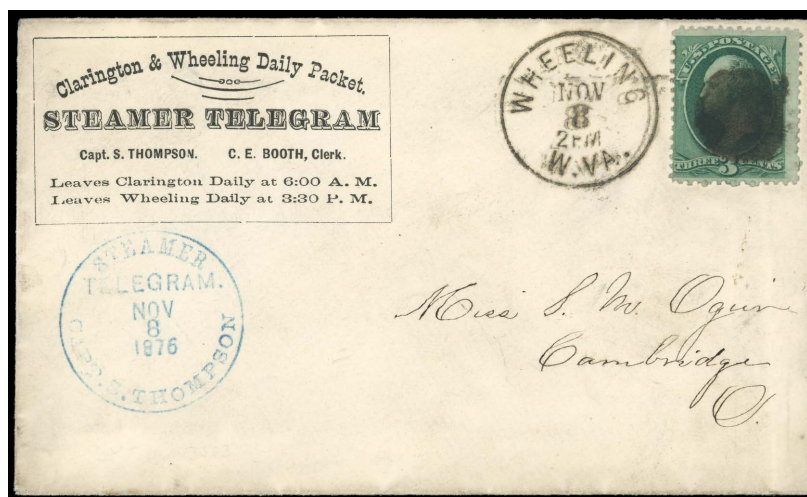 Clarington & Wheeling Daily Packet.
STEAMER TELEGRAM
Capt. S. THOMPSON. C. E. BOOTH, Clerk.
Leaves Clarington Daily at 6:00 A. M.
Leaves Wheeling Daily at 3:30 P. M.
WHEELING
NOV
8
2PM
W.VA.
U.S. POSTAGE
THREE CENTS
3
STEAMER
TELEGRAM.
NOV
8
1876
CAPT. S. THOMPSON
Miss S. M.
Cambridge
O.